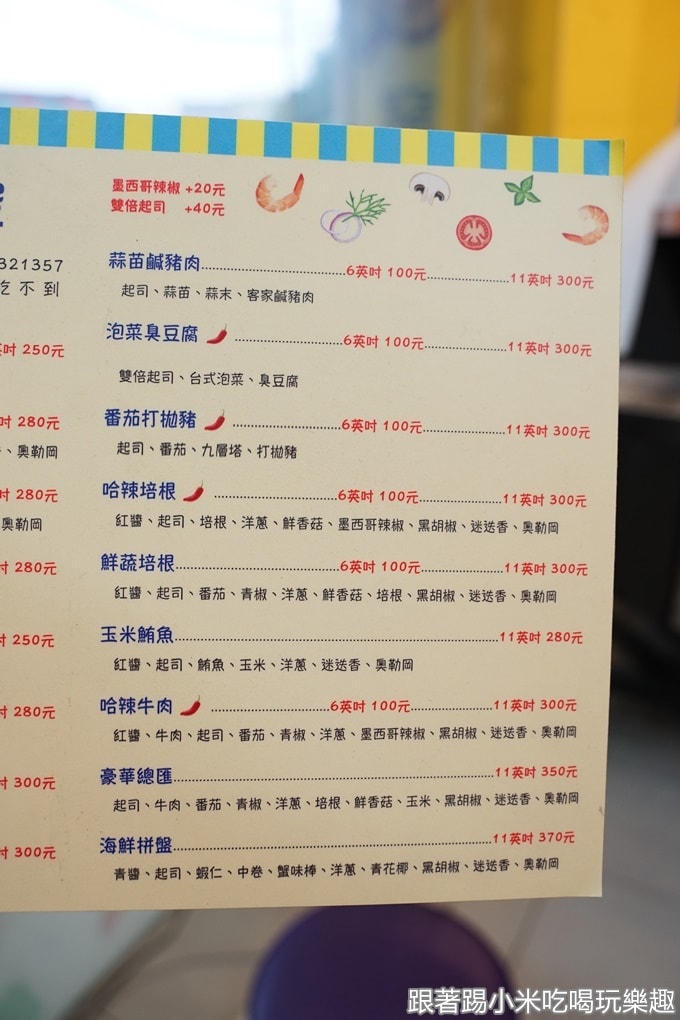 墨西哥辣椒 +20元
雙倍起司 +40元
321357
吃不到
250元
280元
、奧勒岡
280元
奧勒岡
280元
250元
280元
300元
300元
蒜苗鹹豬肉 6英吋 100元 11英吋 300元
起司、蒜苗、蒜末、客家鹹豬肉
泡菜臭豆腐 6英吋 100元 11英吋 300元
雙倍起司、台式泡菜、臭豆腐
番茄打拋豬 6英吋 100元 11英吋 300元
起司、番茄、九層塔、打拋豬
哈辣培根 6英吋 100元 11英吋 300元
紅醬、起司、培根、洋蔥、鮮香菇、墨西哥辣椒、黑胡椒、迷迭香、奧勒岡
鮮蔬培根 6英吋 100元 11英吋 300元
紅醬、起司、番茄、青椒、洋蔥、鮮香菇、培根、黑胡椒、迷迭香、奧勒岡
玉米鮪魚 11英吋 280元
紅醬、起司、鮪魚、玉米、洋蔥、迷迭香、奧勒岡
哈辣牛肉 6英吋 100元 11英吋 300元
紅醬、牛肉、起司、番茄、青椒、洋蔥、墨西哥辣椒、黑胡椒、迷迭香、奧勒岡
豪華總匯 11英吋 350元
起司、牛肉、番茄、青椒、洋蔥、培根、鮮香菇、玉米、黑胡椒、迷迭香、奧勒岡
海鮮拼盤 11英吋 370元
青醬、起司、蝦仁、中卷、蟹味棒、洋蔥、青花椰、黑胡椒、迷迭香、奧勒岡
跟著踢小米吃喝玩樂趣